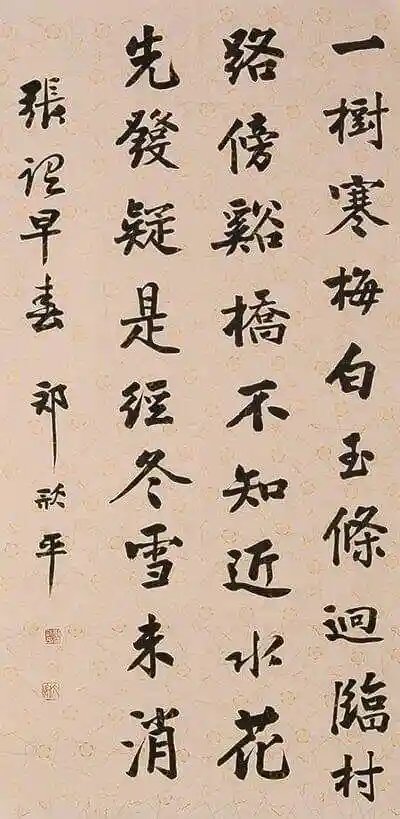 一樹寒梅白玉條迥臨村
路傍谿橋不知近水花
先發疑是經冬雪未消
張謂早春 平